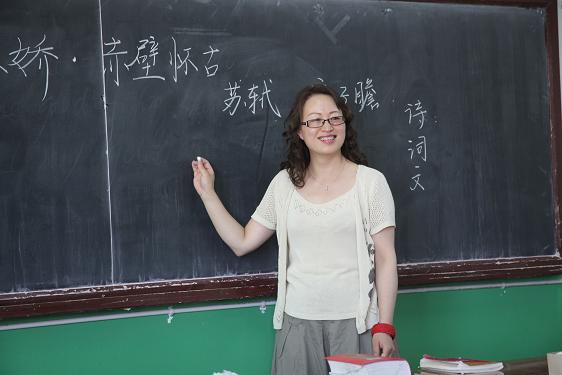 娇·赤壁怀古
苏轼 子瞻
诗词文